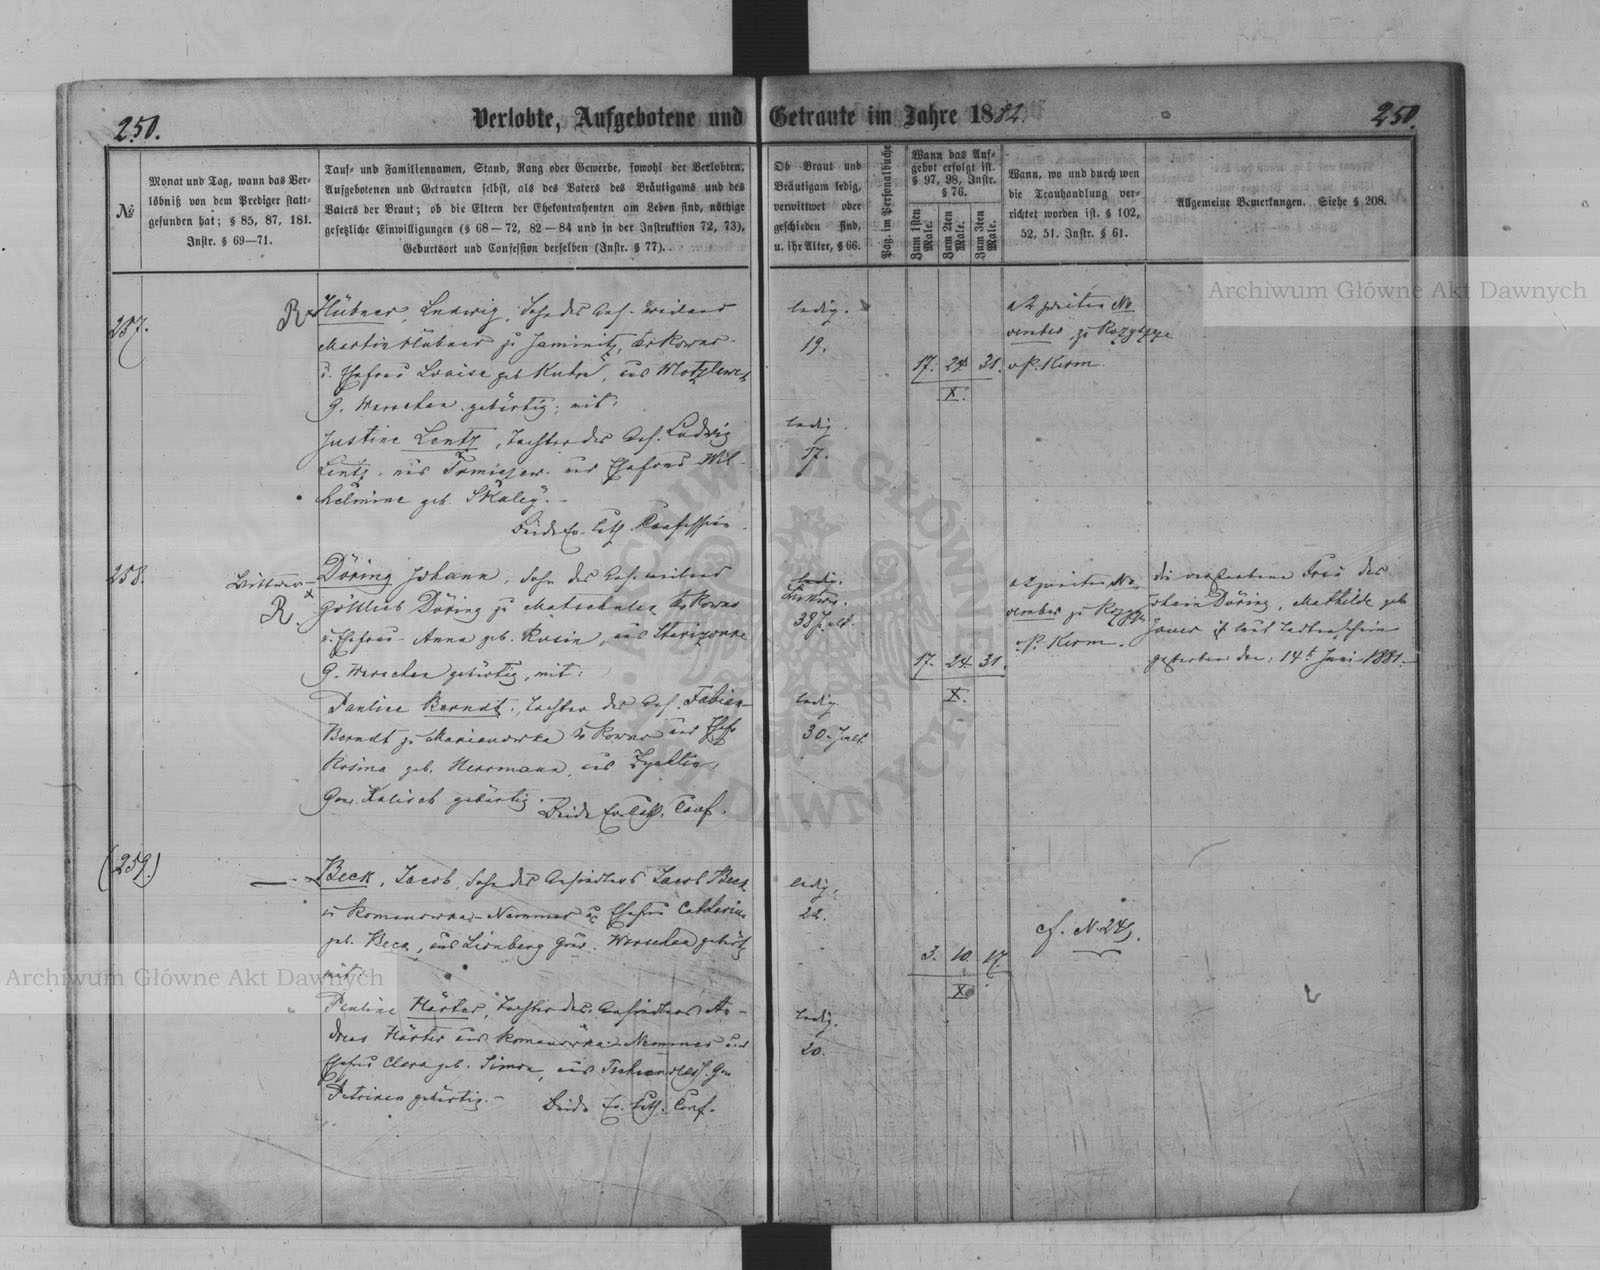 250.
Verlobte, Aufgebotene und Getraute im Jahre 1882.
250.
№
Monat und Tag, wann das Ver-
löbniß von dem Prediger statt-
gefunden hat; § 85, 87, 181.
Instr. § 69—71.
Tauf- und Familiennamen, Stand, Rang oder Gewerbe, sowohl der Verlobten,
Aufgebotenen und Getrauten selbst, als des Vaters des Bräutigams und des
Vaters der Braut; ob die Eltern der Ehekontrahenten am Leben sind, nöthige
gesetzliche Einwilligungen (§ 68—72, 82—84 und in der Instruktion 72, 73),
Geburtsort und Confession derselben (Instr. § 77).
Ob Braut und
Bräutigam ledig,
verwittwet oder
geschieden sind,
u. ihr Alter, § 66.
Pag. im Personalbuche
Wann das Auf-
gebot erfolgt ist.
§ 97, 98, Instr.
§ 76.
Zum 1sten Male.
Zum 2ten Male.
Zum 3ten Male.
Wann, wo und durch wen
die Trauhandlung ver-
richtet worden ist. § 102,
52, 51. Instr. § 61.
Allgemeine Bemerkungen. Siehe § 208.
257.
R
Hübner, Ludwig, Sohn des Col. weiland
Martin Hübner zu Jaminitz,
u. Ehefrau Louise geb. Kuhn, aus
G. Warschau gebürtig; mit:
Justine Lentz, Tochter des Col. Ludwig
Lentz, aus und Ehefrau Wil-
helmine geb.
Beide Ev. Luth. Confession.
ledig.
19.
ledig.
17.
17. 24. 31.
X.
zweiten No
vember zu Rozyszcze
P. Kerm.
258.
Wittwer
R.
Döring Johann, Sohn des Col. weiland
Gottlieb Döring zu
u. Ehefrau Anna geb. Rosin, aus
G. Warschau gebürtig, mit:
Pauline Berndt, Tochter des Col. Fabian
Berndt zu Marianowka und Ehefr.
Rosina geb. Herrmann, aus
Gouv. Kalisch gebürtig.
Beide Ev. Luth. Conf.
ledig.
Wittwer.
38 J. alt.
ledig.
30. J. alt.
17. 24. 31.
X.
zweiten No
vember zu
P. Kerm.
die verstorbene Frau des
Johann Döring, Mathilde geb.
ist laut Todtenschein
gestorben den 14t Juni 1881.
(259.)
Beck, Jacob, Sohn des Ansiedlers Jacob Beck
zu Romanowka-Nemmer u. Ehefrau Catharina
geb. Beck, aus Gouv. Warschau gebürt.
mit:
Pauline Härter, Tochter des Ansiedlers An-
dreas Härter aus Romanowka-Nemmer und
Ehefrau Clara geb. Simon, aus Gou.
Petrikau gebürtig.
Beide Ev. Luth. Conf.
ledig.
22.
ledig.
20.
3. 10. 17.
X
cf. N. 245.
Archiwum Główne Akt Dawnych
Archiwum Główne Akt Dawnych
ARCHIWUM GŁÓWNE AKT DAWNYCH